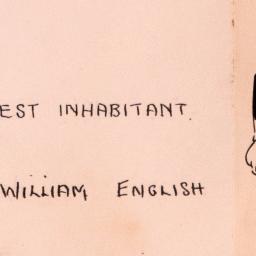 EST INHABITANT.
WILLIAM ENGLISH